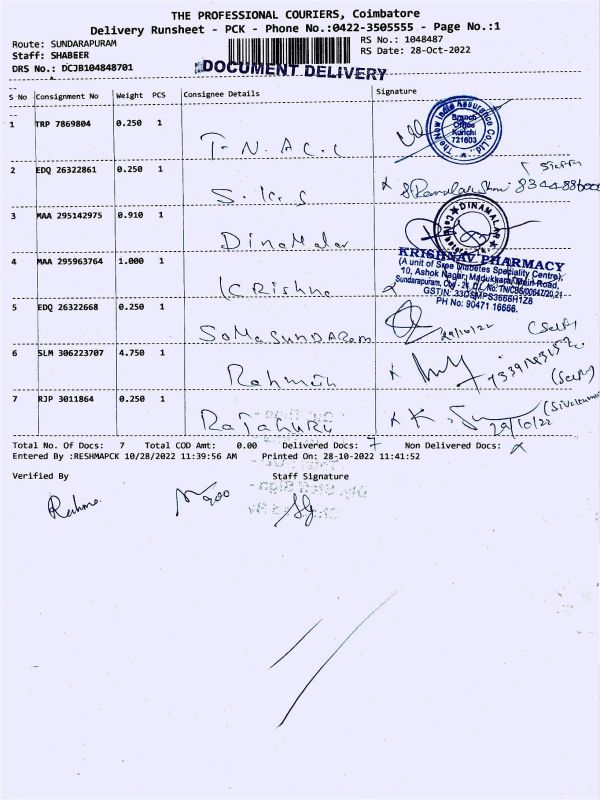 THE PROFESSIONAL COURIERS, Coimbatore
Delivery Runsheet - PCK - Phone No.:0422-3505555 - Page No.:1
Route: SUNDARAPURAM RS No.: 1048487
Staff: SHABEER RS Date: 28-Oct-2022
DRS No.: DCJB104848701 DOCUMENT DELIVERY
S No Consignment No Weight PCS Consignee Details Signature
1 TRP 7869804 0.250 1 T.N.A.C.C
The New India Assurance Co. Ltd.
Branch Office Kurichi 721603
2 EDQ 26322861 0.250 1 S.K.S
3 MAA 295142975 0.910 1 Dinamalar
DINAMALAR
4 MAA 295963764 1.000 1 Krishna
KRISHNAV PHARMACY
(A unit of Sree Diabetes Speciality Centre),
10, Ashok Nagar, Madukkarai Main Road,
Sundarapuram, Cbe - 24.
GSTIN: 33DSMPS3666H1Z8
PH No: 90471 16666.
5 EDQ 26322668 0.250 1 SomaSundaram 29/10/22 (Self)
6 SLM 306223707 4.750 1 Rahman (Self)
7 RJP 3011864 0.250 1 Rajaguru 29/10/22
Total No. Of Docs: 7 Total COD Amt: 0.00 Delivered Docs: 7 Non Delivered Docs:
Entered By :RESHMAPCK 10/28/2022 11:39:56 AM Printed On: 28-10-2022 11:41:52
Verified By Staff Signature